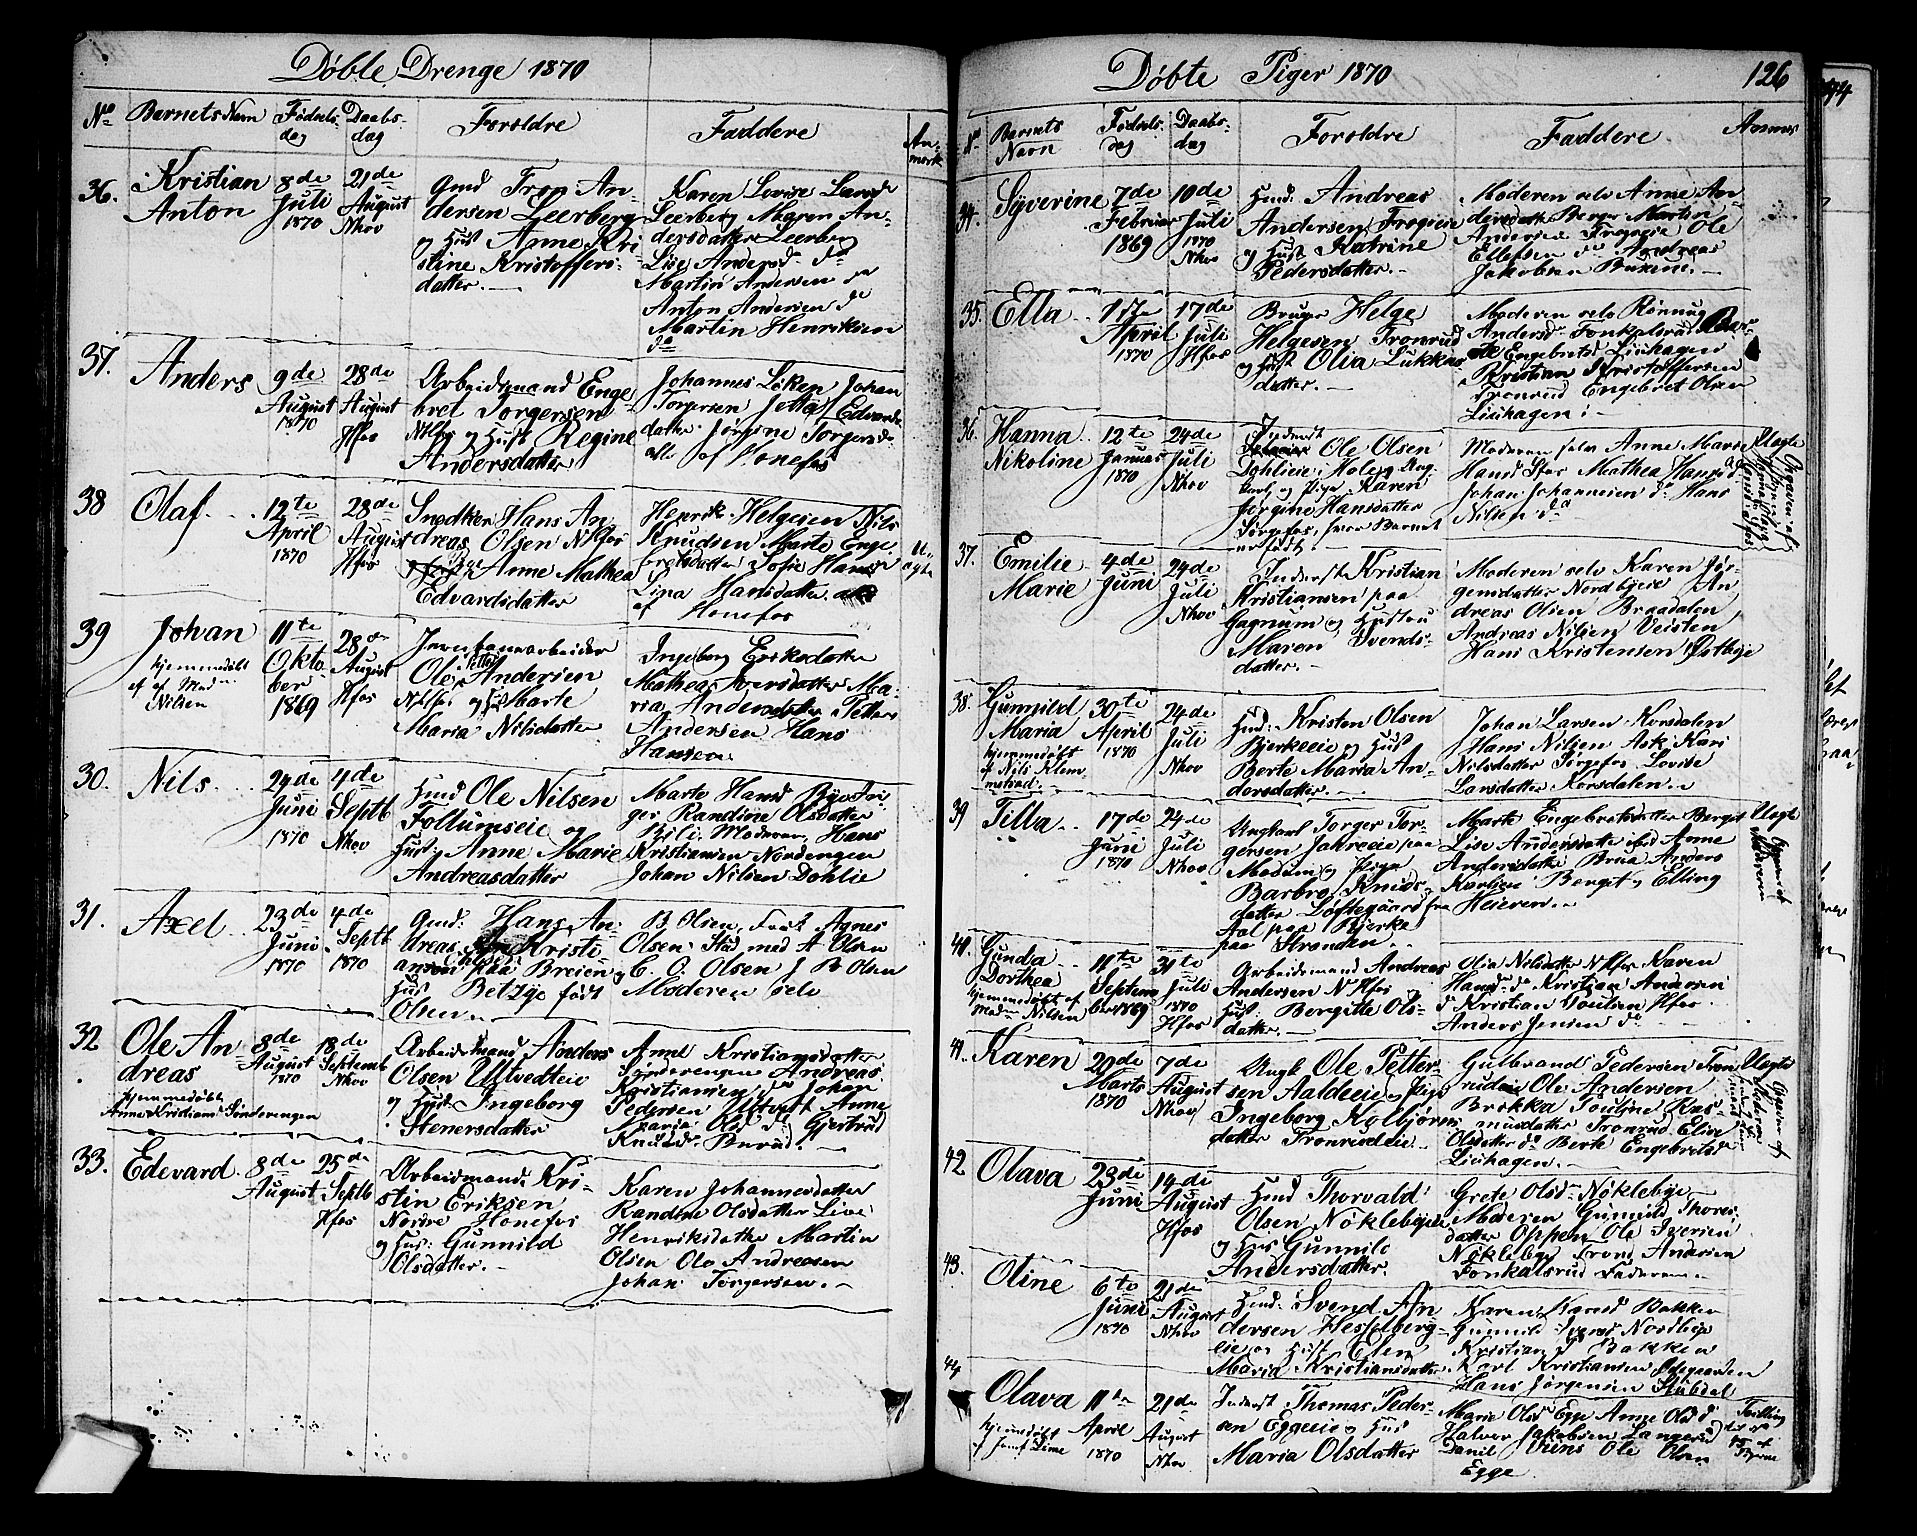 Døbte Drenge 1870
No
Barnets Navn
Fødsels-
dag
Daabs-
dag
Forældre
Faddere
An-
mærk
36.
Kristian
Anton
8de
Juli
1870
21de
August
Nhov
Gmd Tron An-
dersen Leerberg
og Hust Anne Kri
stine Kristoffers-
datter.
Karen Lovise Larsd
Leerberg Maren An-
dersdatter Leerberg
Lise Andersd do
Martin Andersen do
Anton Andersen do
Martin Henriksen
do
37.
Anders
9de
August
1870
28de
August
Hfos
Arbeidsmand Enge-
bret Torgersen
og Hust Regine
Andersdatter
Johannes Løken Johan
Torgersen Jetta Edvards
datter Jørgine Torgersd
alle af Hønefos
38
Olaf
12te
April
1870
28de
August
Hfos
Snedker Hans An-
dreas Olsen N Hfos
Anne Mathea
Edvardsdatter
Henrik Helgesen Nils
Knudsen Marte Enge-
bretsdatter Sofie Hansd
Lina Hansdatter alle
af Hønefos
U-
ægte
39
Johan
hjemmedøbt
af Mad
Nilsen
11te
Okto-
ber
1869
28de
August
Hfos
Jernbanearbeider
Ole Petter Andersen
N Hfos og Hust Marte
Maria Nilsdatter
Ingeborg Eriksdatter
Mathea Iversdatter Ma-
ria Andersdatter Petter
Andersen Hans
Hansen
30.
Nils
29de
Juni
1870
4de
Septb
Nhov
Husmd Ole Nilsen
Follumseie og
Hust: Anne Marie
Andreasdatter
Marte Hansd Bye Pi
ge Randine Olsdatter
Bili Moderen Hans
Kristiansen Nordengen
Johan Nilsen Dohlie
31.
Axel
23de
Juni
1870
4de
Septb
1870
Gmd: Hans An-
dreas Kristi-
ansen paa Breien og
Hust Betzye født
Olsen
B Olsen, Agnes
Olsen Stad med A Olsen
C. O. Olsen J B Olsen
Moderen selv
32
Ole An
dreas
hjemmedøbt
Anne Kristiansd Sønderengen
8de
August
1870
18de
Septemb
Nhov
Arbeidsmand Anders
Olsen Utvedteie
og Hust: Ingeborg
Stenersdatter
Anne Kristiansdatter
Sønderengen Andreas
Kristiansen do Johan
Pedersen Utvedt Anne
Maria Olsd do Gjertrud
Knudsd Burud
33.
Edevard
8de
August
25de
Septb
Hfos
Arbeidsmand: Kri-
stin Eriksen
Nørre Hønefos
og Hust: Gunnild
Olsdatter.
Karen Johannesdatter
Randine Olsdatter Live
Henriksdatter Martin
Olsen Ole Andreasen
Johan Torgersen.
Døbte Piger 1870
126
No
Barnets
Navn
Fødsels-
dag
Daabs-
dag
Forældre
Faddere
Anmrk
34.
Syverine
7de
Februar
1869
10de
Juli
1870
Nhov
Husmd: Andreas
Andersen Frogseie
og Hust Katrine
Pedersdatter.
Moderen selv Anne An-
dersdatter Berger Martin
Andersen Frogseie Ole
Ellefsen do Andreas
Jakobsen Busene.
35.
Ella
17de
April
1870
17de
Juli
Hfos
Bruger Helge
Helgesen Tronrud
og Hust Olia Lukkas
datter.
Moderen selv Rønnug
Andersd Fonkalsrud
Engebretsd Liuhagen
Kristian Kristoffersen
Tronrud Engebret Olsen
Liuhagen
36.
Hanna
Nikoline
12te
Januar
1870
24de
Juli
Nhov
Inderst Ole Olsen
Dohlieie Hole og Ung-
karl og Pige Karen
Jørgine Hansdatter
Jørgefos, hvor Barnet
er født.
Moderen selv Anne Marie
Hansd Sfos Mathea Hansd do
Johan Johannesen do Hans
Nilsen do
Uægte
37.
Emilie
Marie
4de
Juni
24de
Juli
Nhov
Inderst Kristian
Kristiansen paa
Gagnum og Hustru
Maren Svends-
datter.
Moderen selv Karen Jør-
gensdatter Nordbyeie An
dreas Olsen Braadalen
Andreas Nilsen Veisten
Hans Kristensen Østbye
38.
Gunnild
Maria
hjemmedøbt
af Nils Klem
metsrud
30te
April
1870
24de
Juli
Nhov
Husmd: Kristen Olsen
Bjerkeeie og Hust
Berte Maria An-
dersdatter.
Johan Larsen Korsdalen
Hans Nilsen Ask Kari
Nilsdatter Jørgefos Lovise
Larsdatter Korsdalen.
39
Tilla
17de
Juni
1870
24de
Juli
Nhov
Ungkarl Torger Tor-
gersen Jahreeie paa
Modum og Pige
Barbro Knuds-
datter Løftegaard fra
Aal paa Bjerke
paa Stranden.
Marte Engebretsdatter Bergit
Lise Andersdatter ibid Anne
Andersdatter Brua Anders
Karlsen Bergit og Elling
Heieren.
Uægte
Opgivet af
Moderen
40.
Gunda
Dorthea
hjemmedøbt af
Mad Nilsen
11te
Septem
ber 1869
31te
Juli
1870
Hfos
Arbeidsmand Andreas
Andersen N Hfos og
Hust: Bergitte Ols-
datter.
Olia Nilsdatter N Hfos Karen
Hansd do Kristian Andersen
do Kristian Poulsen Hfos
Anders Jensen do
41.
Karen
29de
Marts
1870
7de
August
Nhov
Ungk Ole Petter-
sen Aaldeeie og Pige
Ingeborg Kolbjørns
datter Tronrudeie
Gulbrand Pedersen Tron
rudeie Ole Andersen
Brekka Pouline Ras-
musdatter Tronrud Elise
Olsdatter do Berte Engebretsd
Liuhagen.
Uægte
Opgivet af
Faderen
42
Olava
23de
Juni
14de
August
Hfos
Husmd Thorvald
Olsen Nøklebyeie
og Hus Gunnild
Andersdatter
Grete Olsd Nøklebye
Moderen Gunnild Thores
datter Oppen Ole Iversen
Nøklebye Trond Andersen
Fonkalsrud Faderen.
43.
Oline
6te
Juni
1870
21de
August
Nhov
Husmd: Svend An
dersen Hesselberg-
eie og Hust Elen
Maria Kristiansdatter
Karen Bakken
Gunnild Nordbye
Kristian Bakken
Karl Kristiansen Ødegaarden
Hans Jørgensen Stubdal
44
Olava
hjemmedøbt
11te
April
1870
21de
August
Nhov
Inderst Thomas Peder-
sen Eggeeie og Hust
Maria Olsdatter
Marie Olsd Egge Anne Olsd do
Halvor Jakobsen Langerud
Daniel Ole Olsen
Egge
Tvilling